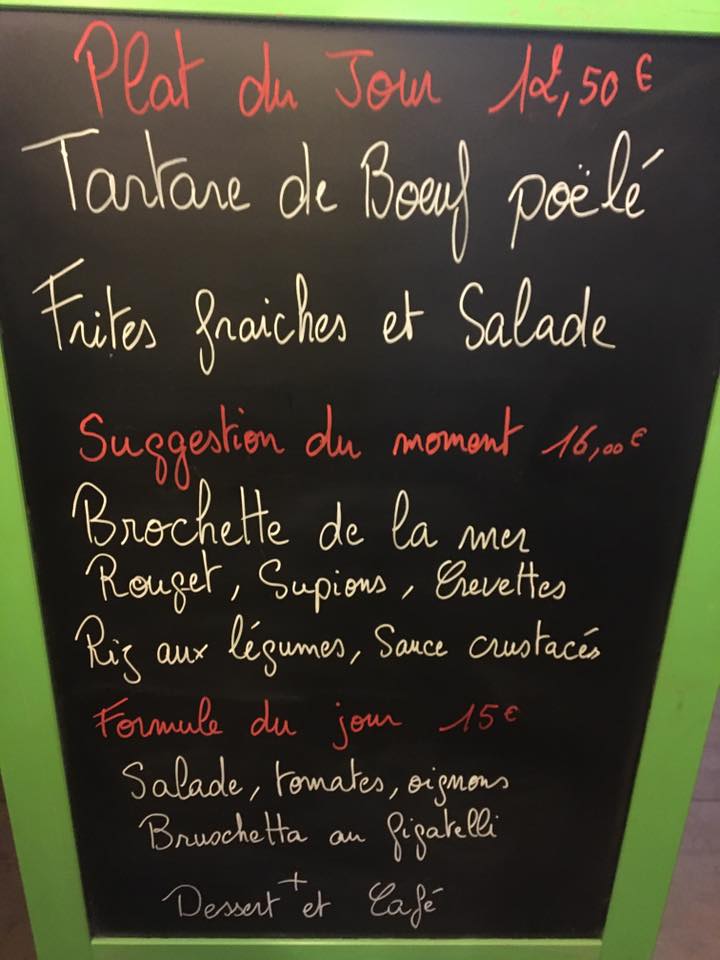 Plat du Jour 12,50 €
Tartare de Boeuf poëlé
Frites fraiches et Salade
Suggestion du moment 16,00 €
Brochette de la mer
Rouget, Supions, Crevettes
Riz aux légumes, Sauce crustacés
Formule du jour 15 €
Salade, tomates, oignons
Bruschetta au figatelli
+
Dessert et Café